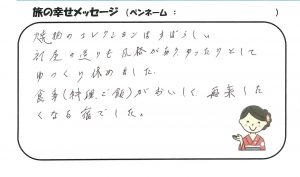 旅の幸せメッセージ（ペンネーム： ）
焼物のコレクションはすばらしい
部屋の造りも風格がありゆったりとして
ゆっくり休めました。
食事(料理、ご飯)がおいしく、再来した
くなる宿でした。